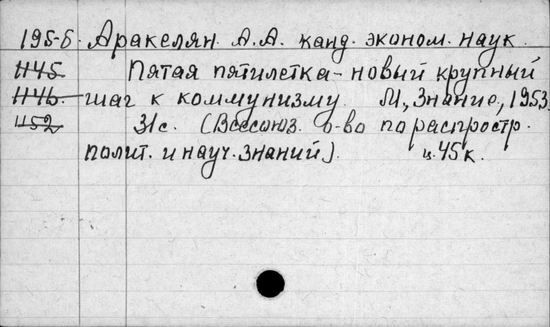 195-б. Аракелян. А.А. канд. эконом. наук.
1145 Пятая пятилетка - новый крупный
1146. шаг к коммунизму. М., Знание, 1953.
1152 31с. (Всесоюз. о-во по распростр.
полит. и науч. знаний). ц. 45 к.